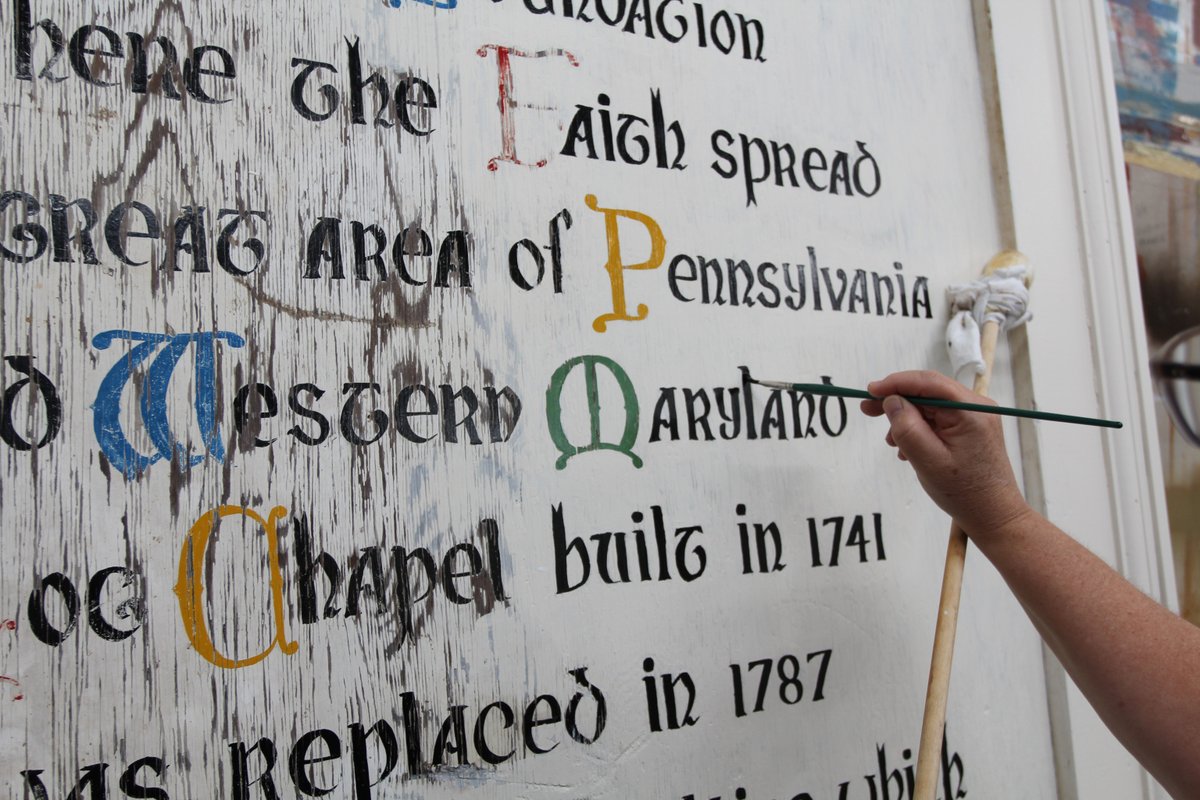 Foundation
here the Faith spread
great area of Pennsylvania
Western Maryland
og Chapel built in 1741
as replaced in 1787
which